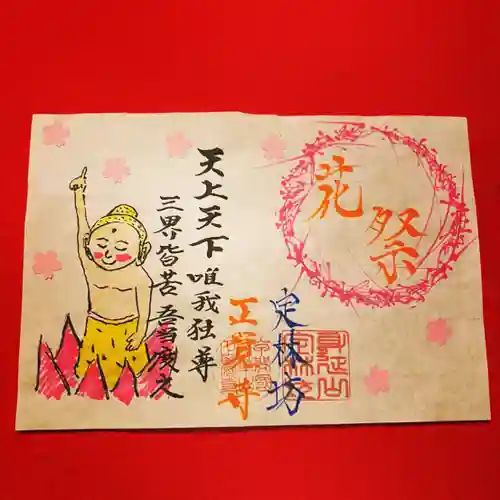 花祭
天上天下 唯我独尊
三界皆苦 吾当度之
定林坊
身延山